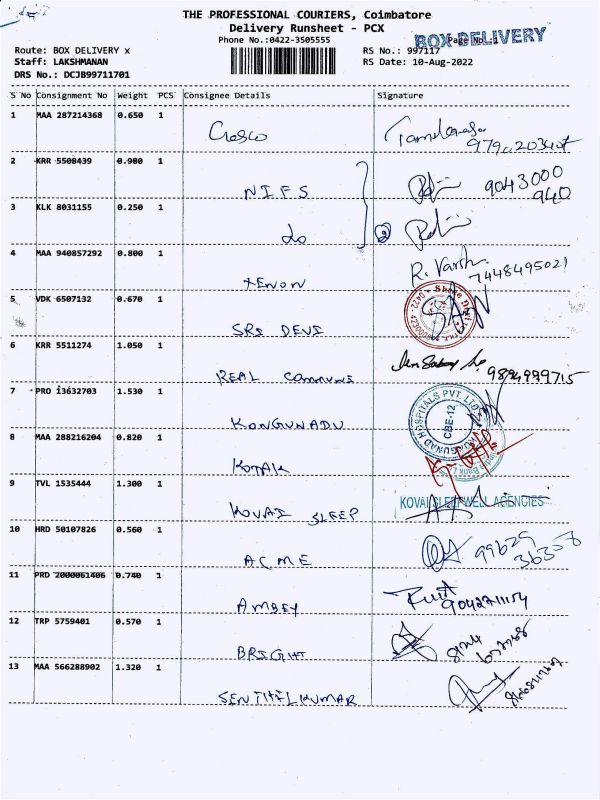 THE PROFESSIONAL COURIERS, Coimbatore
Delivery Runsheet - PCX
Phone No.:0422-3505555
BOX DELIVERY
Page No.:1
Route: BOX DELIVERY x
RS No.: 997117
Staff: LAKSHMANAN
RS Date: 10-Aug-2022
DRS No.: DCJB99711701
S No Consignment No Weight PCS Consignee Details Signature
1 MAA 287214368 0.650 1
2 KRR 5508439 0.980 1 NIFS 9043000 940
3 KLK 8031155 0.250 1 do
4 MAA 940857292 0.800 1 XENON R. Varsh 7448495021
5 VDK 6507132 0.670 1 SRI DEVI
6 KRR 5511274 1.050 1 REAL 9894999715
7 PRO 13632703 1.530 1 KONGUNADU
HOSPITALS PVT LTD
CBE-12
8 MAA 288216204 0.820 1 KOTAK
9 TVL 1535444 1.300 1 KOVAI SLEEP KOVAI SLEEPWELL AGENCIES
10 HRD 50107826 0.560 1 ACME 99629 36358
11 PRD 2000061406 0.740 1 9042711154
12 TRP 5759401 0.570 1 BRIGHT
13 MAA 566288902 1.320 1 SENTHILKUMAR